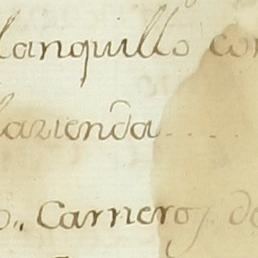 lanquillo con
lazienda.....
o,, Carneros de